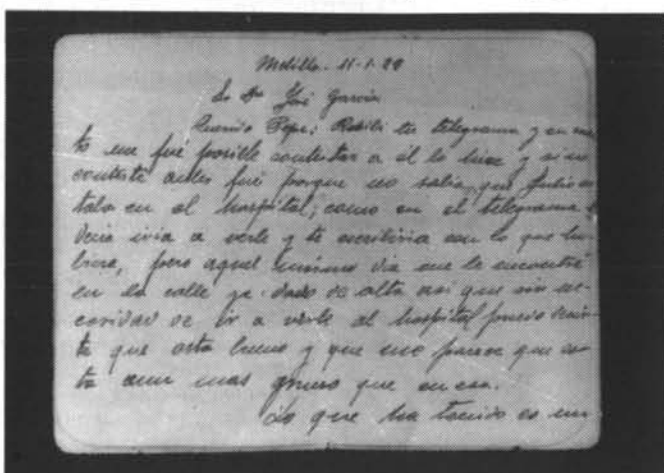 Melilla - 11-1-22
Sr Dn José García
Querido Pepe: Recibí tu telegrama y en cuan
to me fué posible contestar a él lo hice y si no
contesté antes fué porque no sabía que Julio es
taba en el hospital; como en el telegrama te
decia iria a verle y te escribiria con lo que hu-
biera, pero aquel mismo dia me le encontré
en la calle ya dado de alta asi que sin ne-
cesidad de ir a verle al hospital puedo decir-
te que esta bueno y que me parece que es-
ta aun mas grueso que en esa.
Lo que ha tenido es un